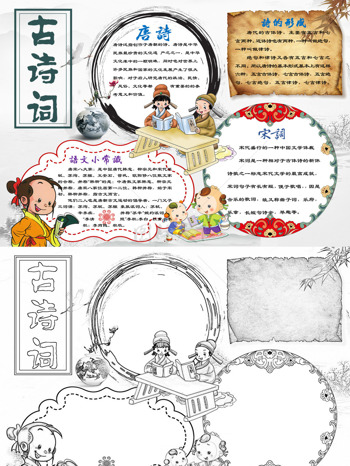 古诗词
唐詩
唐诗泛指创作于唐朝的诗。唐诗是中华
民族珍贵的文化遗产之一,是中华
文化宝库中的一颗明珠,同时也对世界上
许多民族和国家的文化发展产生了很大
影响,对于后人研究唐代的政治、民情、
风俗、文化等都有重要的参考
意义和价值。
詩的形成
唐代的古体诗,主要有五言和七言
两种。近体诗也有两种,一种叫做绝句,
一种叫做律诗。
绝句和律诗又各有五言和七言之
不同。所以唐诗的基本形式基本上有这样
六种:五言古体诗,七言古体诗,五言绝
句,七言绝句,五言律诗,七言律诗。
宋詞
宋代盛行的一种中国文学体裁
宋词是一种相对于古体诗的新体
诗歌之一,标志宋代文学的最高成就。
宋词句子有长有短,便于歌唱。因是
合乐的歌词,故又称曲子词、乐府、
乐章、长短句、诗余、琴趣等。
語文小常識
唐宋八大家,是中国唐代韩愈、柳宗元和宋代欧阳
古诗词